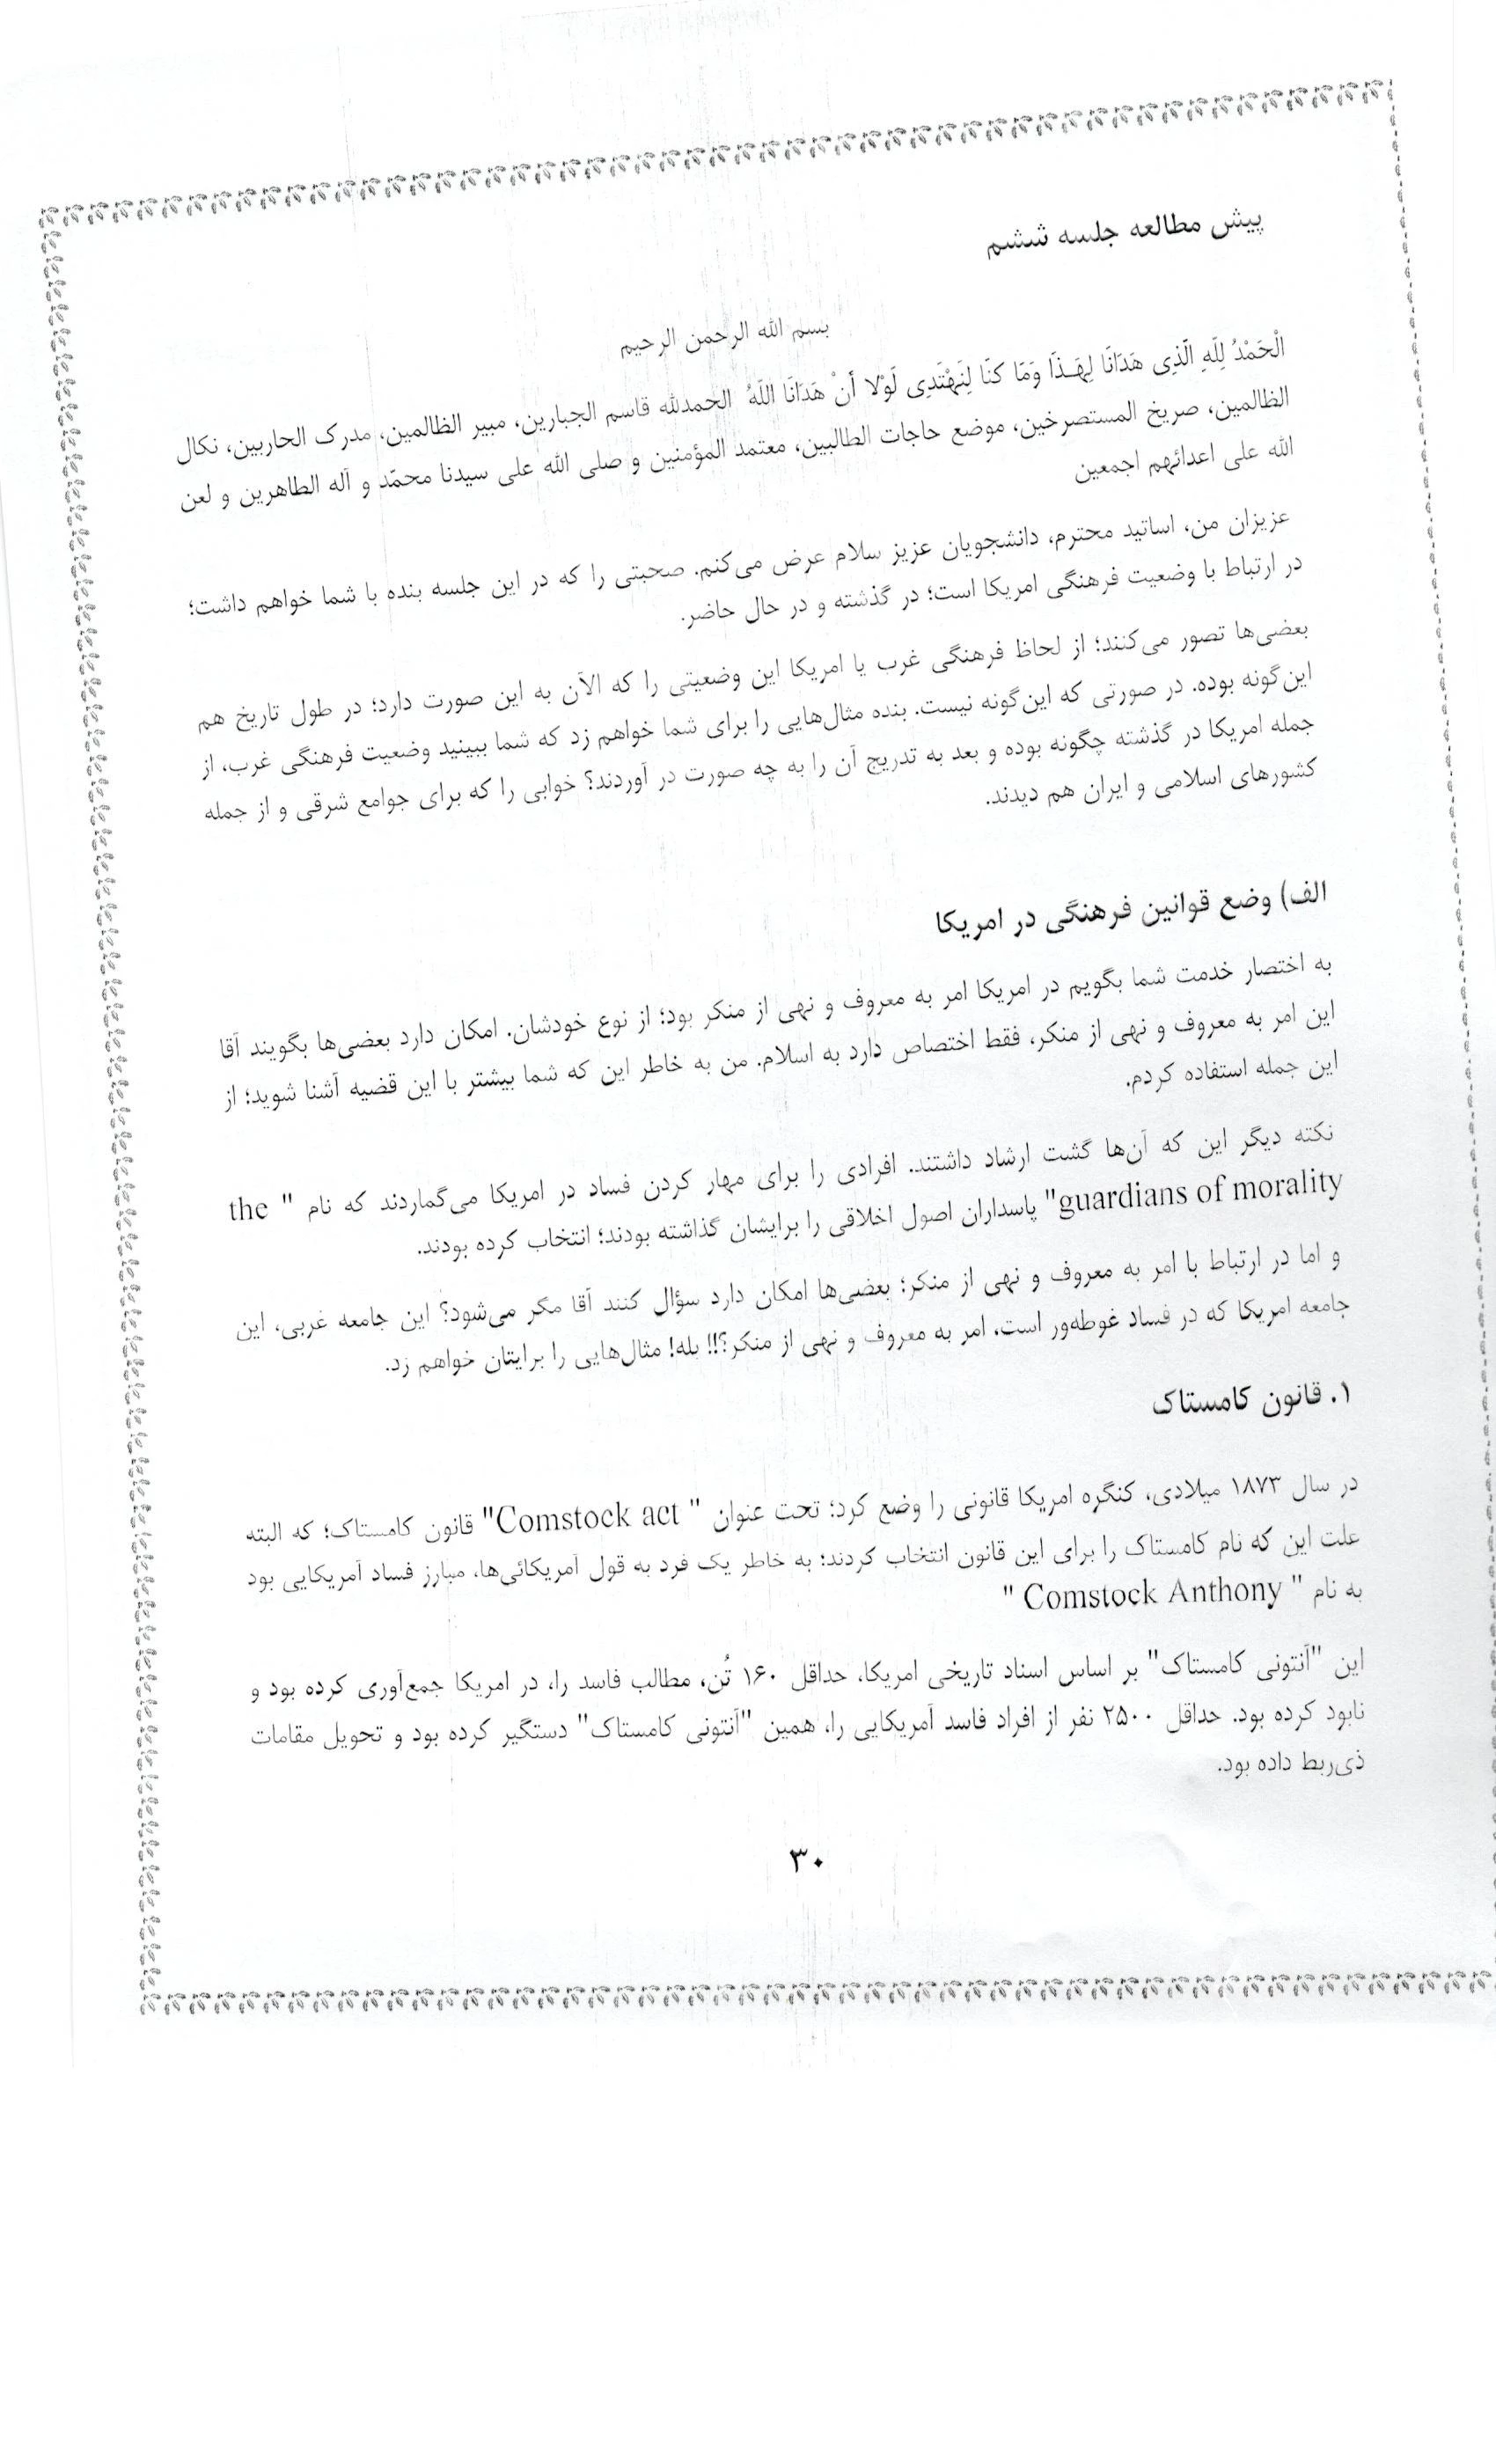 پیش مطالعه جلسه ششم
بسم الله الرحمن الرحیم
الْحَمْدُ لِلَهِ الَّذِی هَدَانَا لِهَـذَا وَمَا کنَا لِنَهْتَدِی لَوْلا أنْ هَدَانَا اللَهُ الحمدلله قاسم الجبارین، مبیر الظالمین، مدرک الحاربین، نکال
الظالمین، صریخ المستصرخین، موضع حاجات الطالبین، معتمد المؤمنین و صلی الله علی سیدنا محمّد و آله الطاهرین و لعن
الله علی اعدائهم اجمعین
عزیزان من، اساتید محترم، دانشجویان عزیز سلام عرض می‌کنم. صحبتی را که در این جلسه بنده با شما خواهم داشت؛
در ارتباط با وضعیت فرهنگی امریکا است؛ در گذشته و در حال حاضر.
بعضی‌ها تصور می‌کنند؛ از لحاظ فرهنگی غرب یا امریکا این وضعیتی را که الآن به این صورت دارد؛ در طول تاریخ هم
این‌گونه بوده. در صورتی که این‌گونه نیست. بنده مثال‌هایی را برای شما خواهم زد که شما ببینید وضعیت فرهنگی غرب، از
جمله امریکا در گذشته چگونه بوده و بعد به تدریج آن را به چه صورت در آوردند؟ خوابی را که برای جوامع شرقی و از جمله
کشورهای اسلامی و ایران هم دیدند.
الف) وضع قوانین فرهنگی در امریکا
به اختصار خدمت شما بگویم در امریکا امر به معروف و نهی از منکر بود؛ از نوع خودشان. امکان دارد بعضی‌ها بگویند آقا
این امر به معروف و نهی از منکر، فقط اختصاص دارد به اسلام. من به خاطر این که شما بیشتر با این قضیه آشنا شوید؛ از
این جمله استفاده کردم.
نکته دیگر این که آن‌ها گشت ارشاد داشتند. افرادی را برای مهار کردن فساد در امریکا می‌گماردند که نام " the
guardians of morality" پاسداران اصول اخلاقی را برایشان گذاشته بودند؛ انتخاب کرده بودند.
و اما در ارتباط با امر به معروف و نهی از منکر؛ بعضی‌ها امکان دارد سؤال کنند آقا مگر می‌شود؟ این جامعه غربی، این
جامعه امریکا که در فساد غوطه‌ور است، امر به معروف و نهی از منکر؟!! بله! مثال‌هایی را برایتان خواهم زد.
۱. قانون کامستاک
در سال ۱۸۷۳ میلادی، کنگره امریکا قانونی را وضع کرد؛ تحت عنوان " Comstock act" قانون کامستاک؛ که البته
علت این که نام کامستاک را برای این قانون انتخاب کردند؛ به خاطر یک فرد به قول آمریکائی‌ها، مبارز فساد آمریکایی بود
به نام " Comstock Anthony "
این "آنتونی کامستاک" بر اساس اسناد تاریخی امریکا، حداقل ۱۶۰ تُن، مطالب فاسد را، در امریکا جمع‌آوری کرده بود و
نابود کرده بود. حداقل ۲۵۰۰ نفر از افراد فاسد آمریکایی را، همین "آنتونی کامستاک" دستگیر کرده بود و تحویل مقامات
ذی‌ربط داده بود.
۳۰